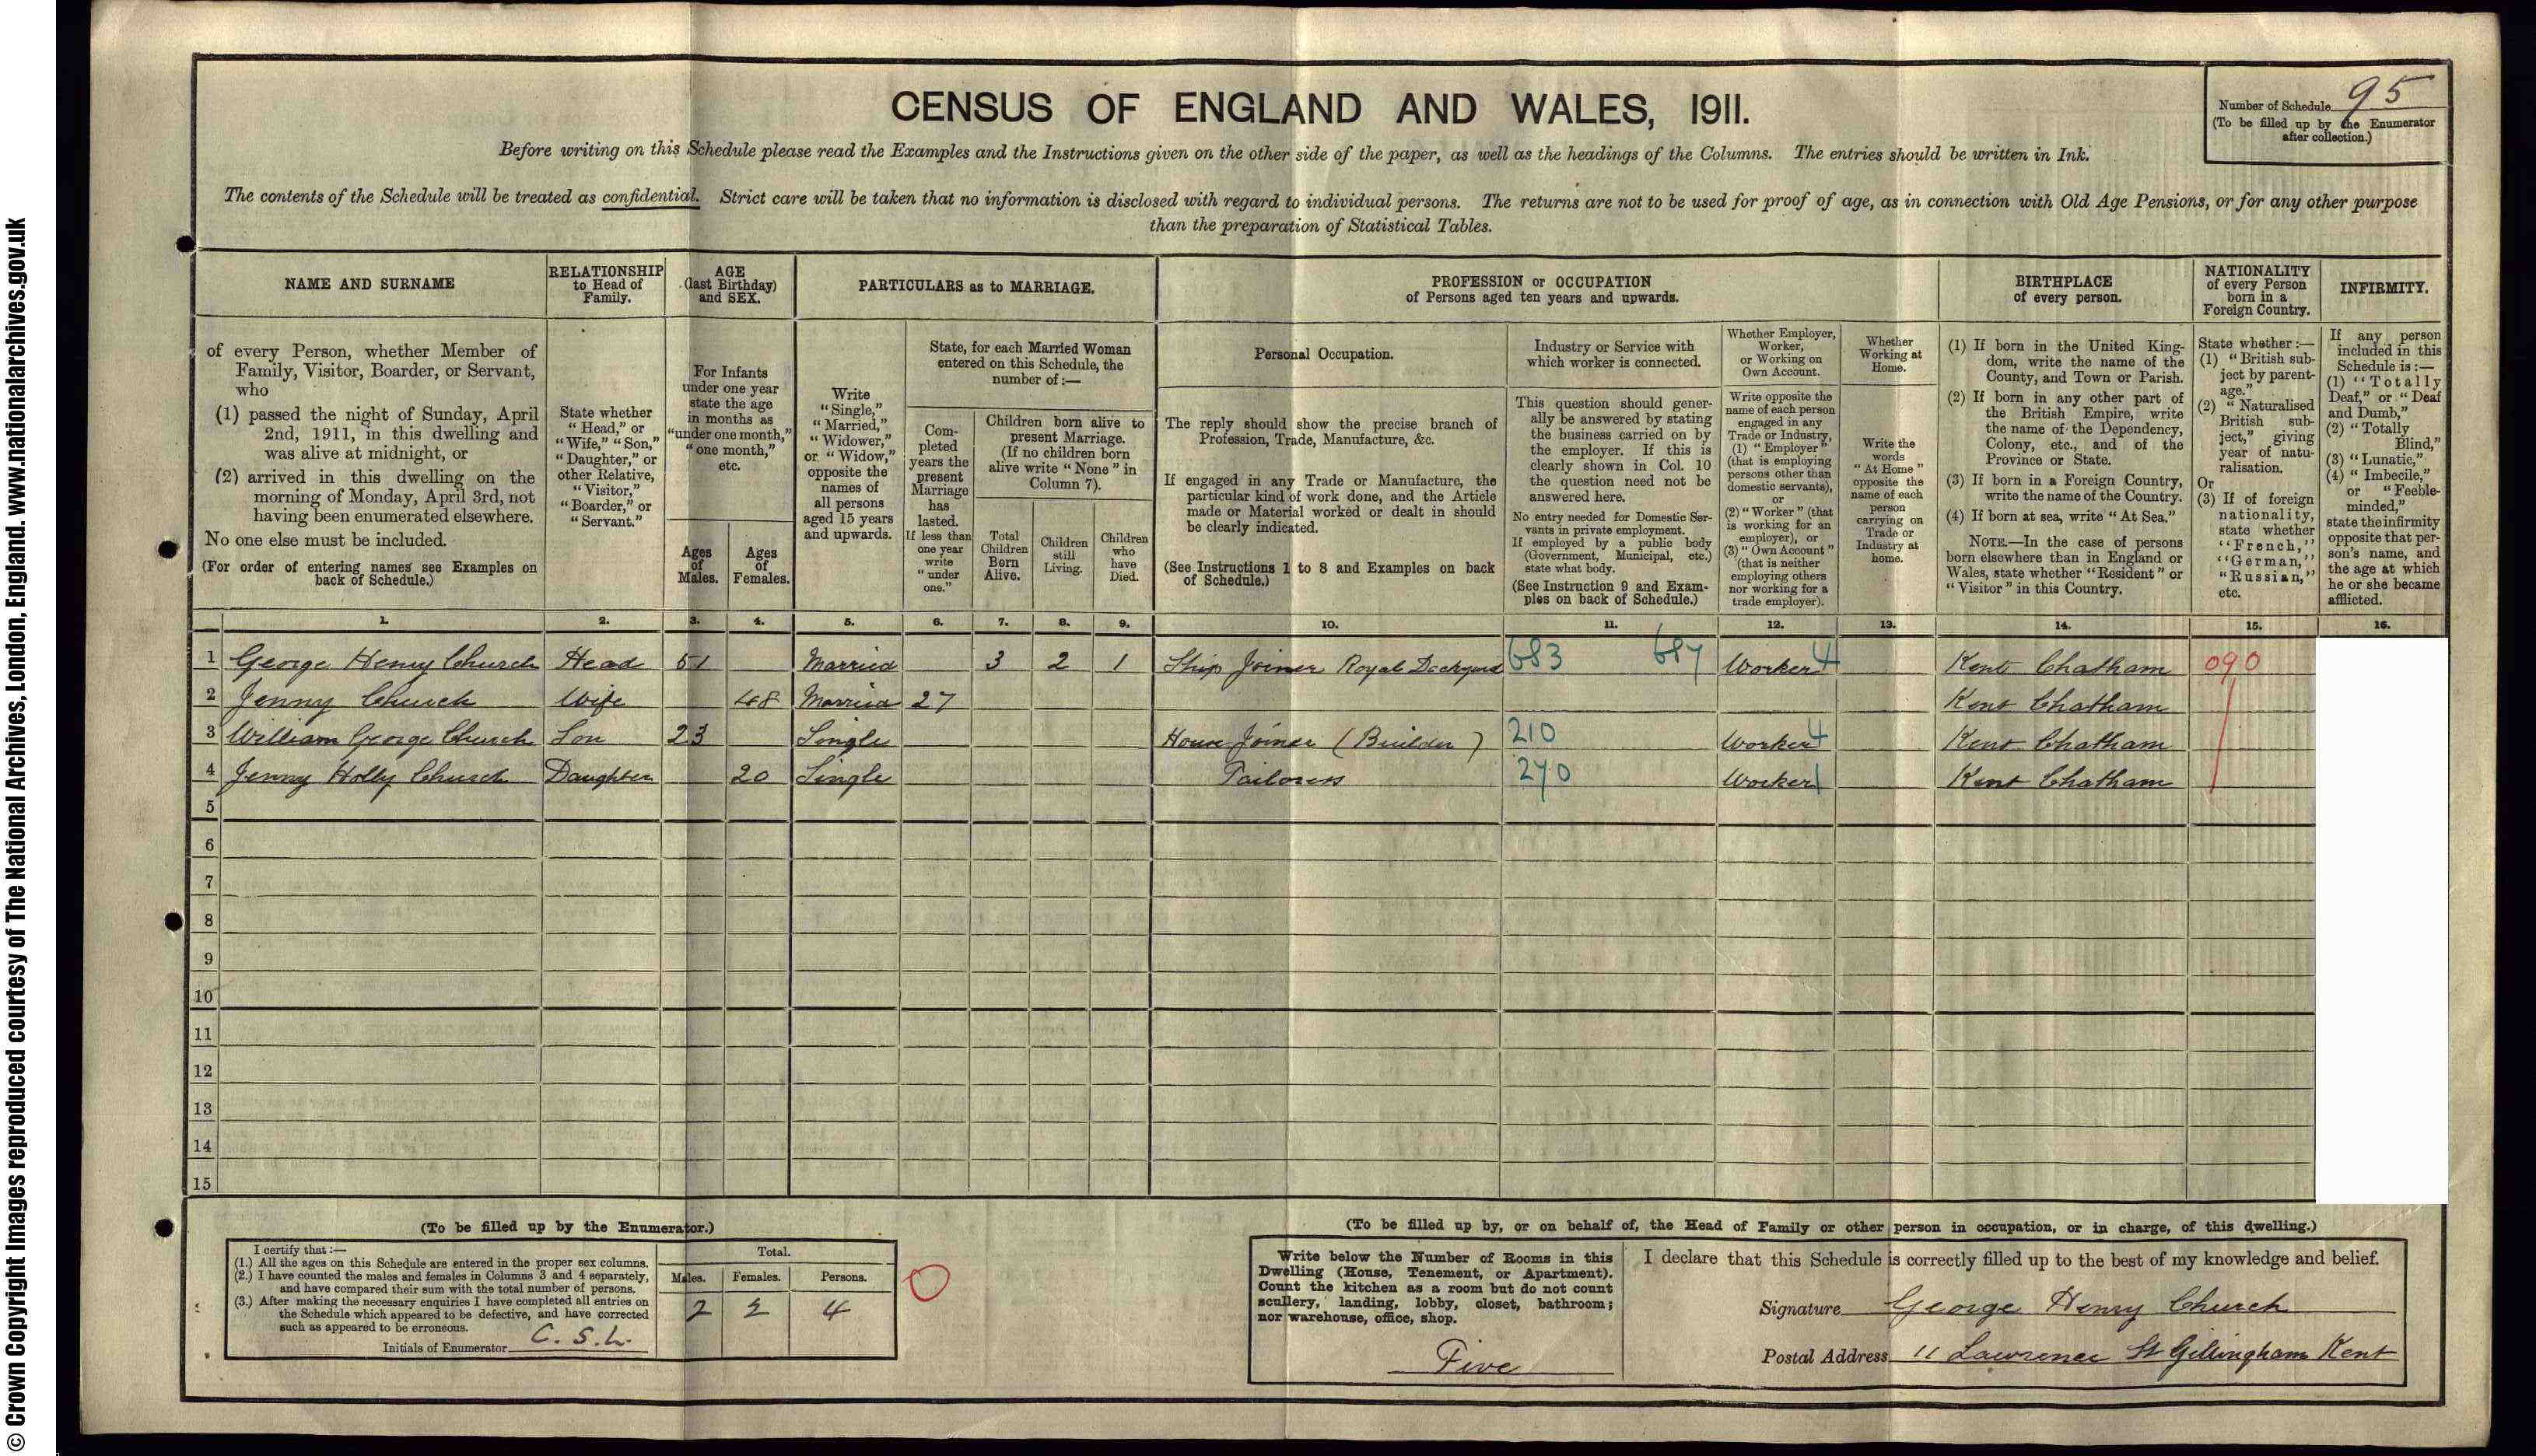 © Crown Copyright Images reproduced courtesy of The National Archives, London, England. www.nationalarchives.gov.uk
CENSUS OF ENGLAND AND WALES, 1911.
Number of Schedule 95
(To be filled up by the Enumerator
after collection.)
Before writing on this Schedule please read the Examples and the Instructions given on the other side of the paper, as well as the headings of the Columns. The entries should be written in Ink.
The contents of the Schedule will be treated as confidential. Strict care will be taken that no information is disclosed with regard to individual persons. The returns are not to be used for proof of age, as in connection with Old Age Pensions, or for any other purpose
than the preparation of Statistical Tables.
NAME AND SURNAME
of every Person, whether Member of
Family, Visitor, Boarder, or Servant,
who
(1) passed the night of Sunday, April
2nd, 1911, in this dwelling and
was alive at midnight, or
(2) arrived in this dwelling on the
morning of Monday, April 3rd, not
having been enumerated elsewhere.
No one else must be included.
(For order of entering names see Examples on
back of Schedule.)
RELATIONSHIP
to Head of
Family.
State whether
"Head," or
"Wife," "Son,"
"Daughter," or
other Relative,
"Visitor,"
"Boarder," or
"Servant."
AGE
(last Birthday)
and SEX.
For Infants
under one year
state the age
in months as
"under one month,"
"one month,"
etc.
Ages
of
Males.
Ages
of
Females.
PARTICULARS as to MARRIAGE.
Write
"Single,"
"Married,"
"Widower,"
or "Widow,"
opposite the
names of
all persons
aged 15 years
and upwards.
State, for each Married Woman
entered on this Schedule, the
number of :—
Com-
pleted
years the
present
Marriage
has
lasted.
If less than
one year
write
"under
one."
Children born alive to
present Marriage.
(If no children born
alive write "None" in
Column 7).
Total
Children
Born
Alive.
Children
still
Living.
Children
who
have
Died.
PROFESSION or OCCUPATION
of Persons aged ten years and upwards.
Personal Occupation.
The reply should show the precise branch of
Profession, Trade, Manufacture, &c.
If engaged in any Trade or Manufacture, the
particular kind of work done, and the Article
made or Material worked or dealt in should
be clearly indicated.
(See Instructions 1 to 8 and Examples on back
of Schedule.)
Industry or Service with
which worker is connected.
This question should gener-
ally be answered by stating
the business carried on by
the employer. If this is
clearly shown in Col. 10
the question need not be
answered here.
No entry needed for Domestic Ser-
vants in private employment.
If employed by a public body
(Government, Municipal, etc.)
state what body.
(See Instruction 9 and Exam-
ples on back of Schedule.)
Whether Employer,
Worker,
or Working on
Own Account.
Write opposite the
name of each person
engaged in any
Trade or Industry,
(1) "Employer"
(that is employing
persons other than
domestic servants),
or
(2) "Worker" (that
is working for an
employer), or
(3) "Own Account"
(that is neither
employing others
nor working for a
trade employer).
Whether
Working at
Home.
Write the
words
"At Home"
opposite the
name of each
person
carrying on
Trade or
Industry at
home.
BIRTHPLACE
of every person.
(1) If born in the United King-
dom, write the name of the
County, and Town or Parish.
(2) If born in any other part of
the British Empire, write
the name of the Dependency,
Colony, etc., and of the
Province or State.
(3) If born in a Foreign Country,
write the name of the Country.
(4) If born at sea, write "At Sea."
NOTE.—In the case of persons
born elsewhere than in England or
Wales, state whether "Resident" or
"Visitor" in this Country.
NATIONALITY
of every Person
born in a
Foreign Country.
State whether :—
(1) "British sub-
ject by parent-
age."
(2) "Naturalised
British sub-
ject," giving
year of natu-
ralisation.
Or
(3) If of foreign
nationality,
state whether
"French,"
"German,"
"Russian,"
etc.
INFIRMITY.
If any person
included in this
Schedule is :—
(1) "Totally
Deaf," or "Deaf
and Dumb,"
(2) "Totally
Blind,"
(3) "Lunatic,"
(4) "Imbecile,"
or "Feeble-
minded,"
state the infirmity
opposite that per-
son's name, and
the age at which
he or she became
afflicted.
1. 2. 3. 4. 5. 6. 7. 8. 9. 10. 11. 12. 13. 14. 15. 16.
1 George Henry Church Head 51 Married 3 2 1 Ship Joiner Royal Dockyard 683 687 Worker 4 Kent Chatham 090
2 Jenny Church Wife 48 Married 27 Kent Chatham
3 William George Church Son 23 Single House Joiner (Builder) 210 Worker 4 Kent Chatham
4 Jenny Holly Church Daughter 20 Single Tailoress 270 Worker 1 Kent Chatham
5
6
7
8
9
10
11
12
13
14
15
(To be filled up by the Enumerator.)
I certify that :—
(1.) All the ages on this Schedule are entered in the proper sex columns.
(2.) I have counted the males and females in Columns 3 and 4 separately,
and have compared their sum with the total number of persons.
(3.) After making the necessary enquiries I have completed all entries on
the Schedule which appeared to be defective, and have corrected
such as appeared to be erroneous.
Initials of Enumerator C. S. L.
Total.
Males. Females. Persons.
2 2 4
(To be filled up by, or on behalf of, the Head of Family or other person in occupation, or in charge, of this dwelling.)
Write below the Number of Rooms in this
Dwelling (House, Tenement, or Apartment).
Count the kitchen as a room but do not count
scullery, landing, lobby, closet, bathroom;
nor warehouse, office, shop.
Five
I declare that this Schedule is correctly filled up to the best of my knowledge and belief.
Signature George Henry Church
Postal Address 11 Lawrence St Gillingham Kent